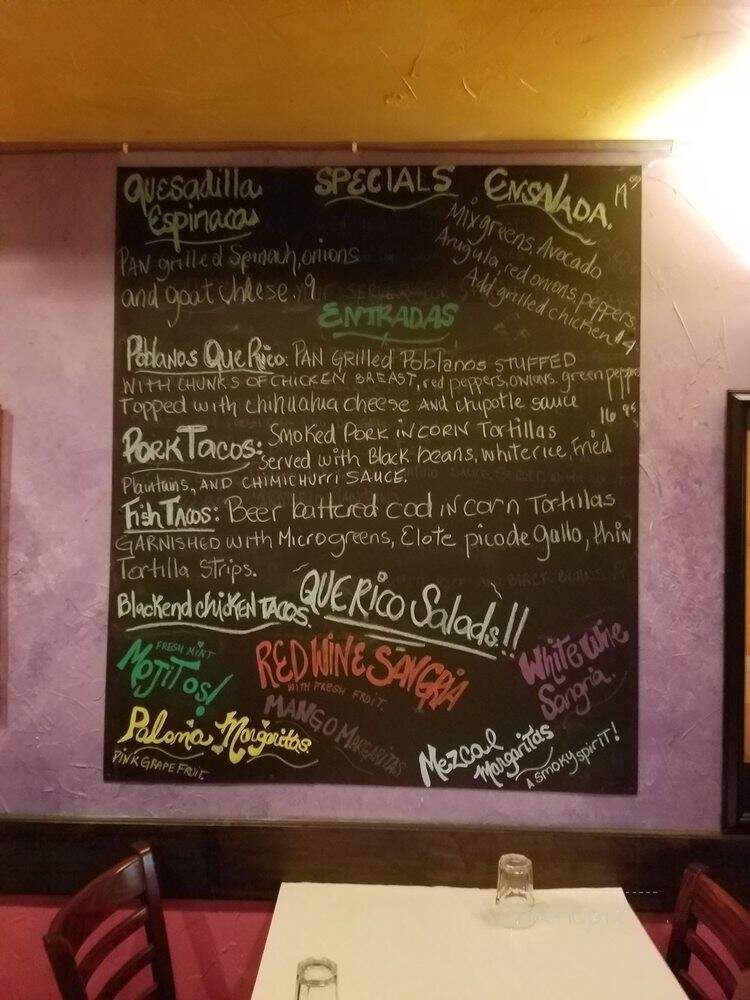 SPECIALS
Quesadilla
Espinacas
PAN grilled Spinach, onions
and goat cheese. 9
ENSALADA.
Mix greens, Avocado
Arugula, red onions, peppers,
Add grilled chicken $4
ENTRADAS
Poblanos Que Rico: PAN GRilled Poblanos STUFFED
WITH CHUNKS OF CHICKEN BREAST, red peppers, onions. green peppers
Topped with chihuahua cheese AND chipotle sauce
16 95
PORK TACOS: Smoked PORK iN CORN Tortillas
served with Black beans, white rice, Fried
Plantains, AND CHIMICHURRI SAUCE.
Fish TACOS: Beer battered cod iN corn Tortillas
GARNISHED with Microgreens, Elote pico de gallo, thin
Tortilla Strips.
Blackend chicKEN TACOS.
QUE RICO Salads!!
FRESH MINT
MOJITOS!
RED WINE SANGRIA
WITH FRESH FRUIT.
White Wine
Sangria.
Paloma Margaritas
PINK GRAPEFRUIT.
MANGO MARGARITAS
Mezcal
Margaritas
A SMOKY SPIRIT!